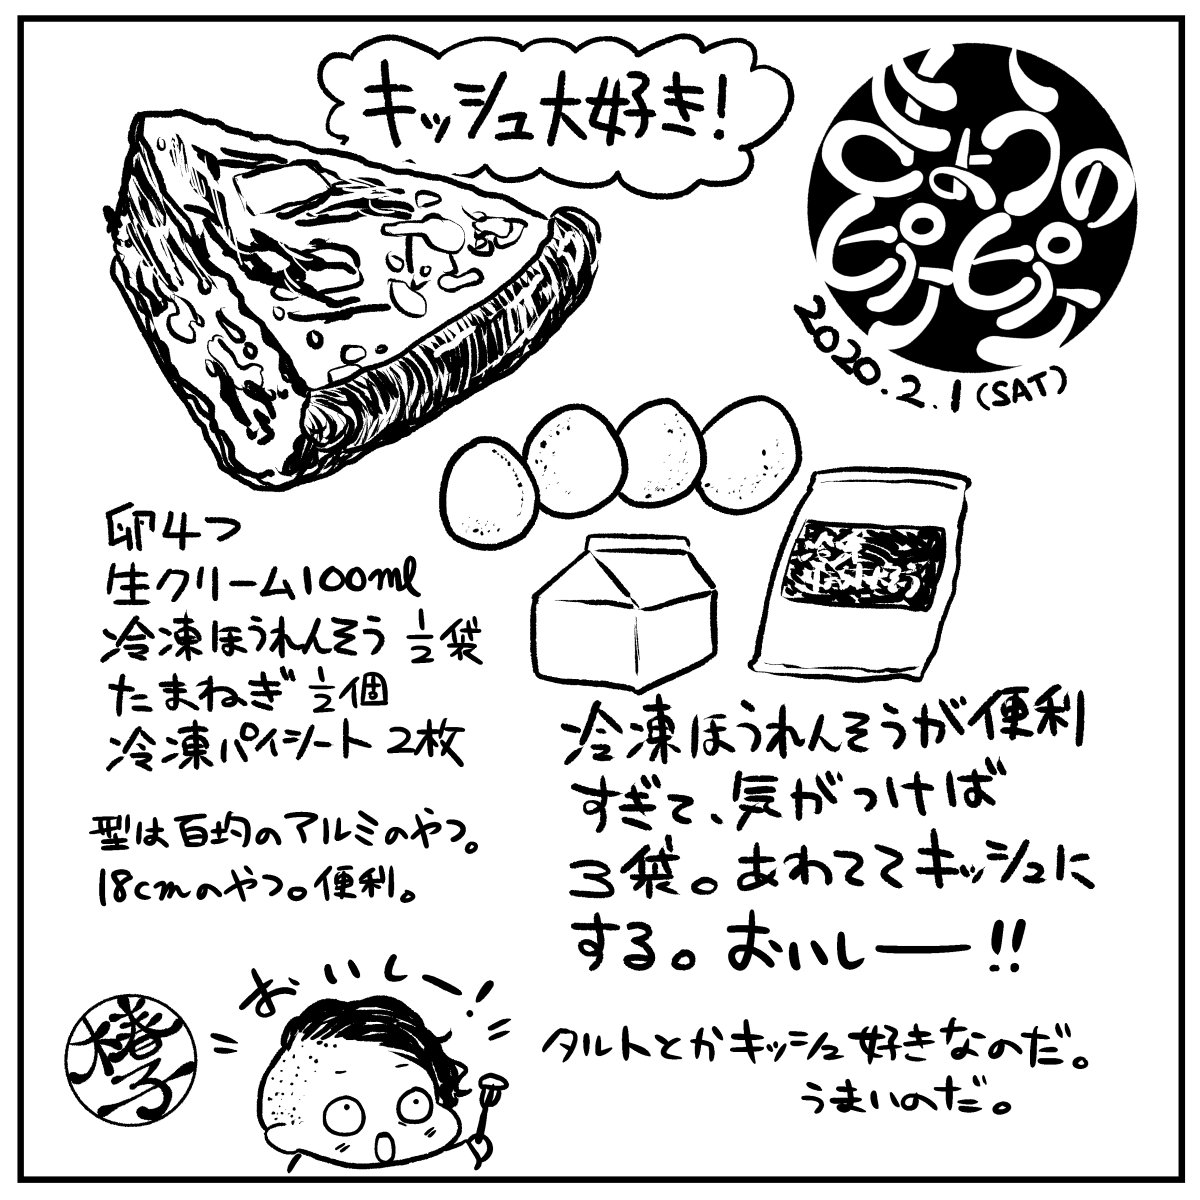 キッシュ大好き!
きょうの
ピケピケ
2020.2.1(SAT)
卵4つ
生クリーム100ml
冷凍ほうれんそう 1/2袋
たまねぎ 1/2個
冷凍パイシート 2枚
型は百均のアルミのやつ。
18cmのやつ。便利。
冷凍ほうれんそうが便利
すぎて、気がつけば
3袋。あわててキッシュに
する。おいしー!!
おいしー!
タルトとかキッシュ好きなのだ。
うまいのだ。